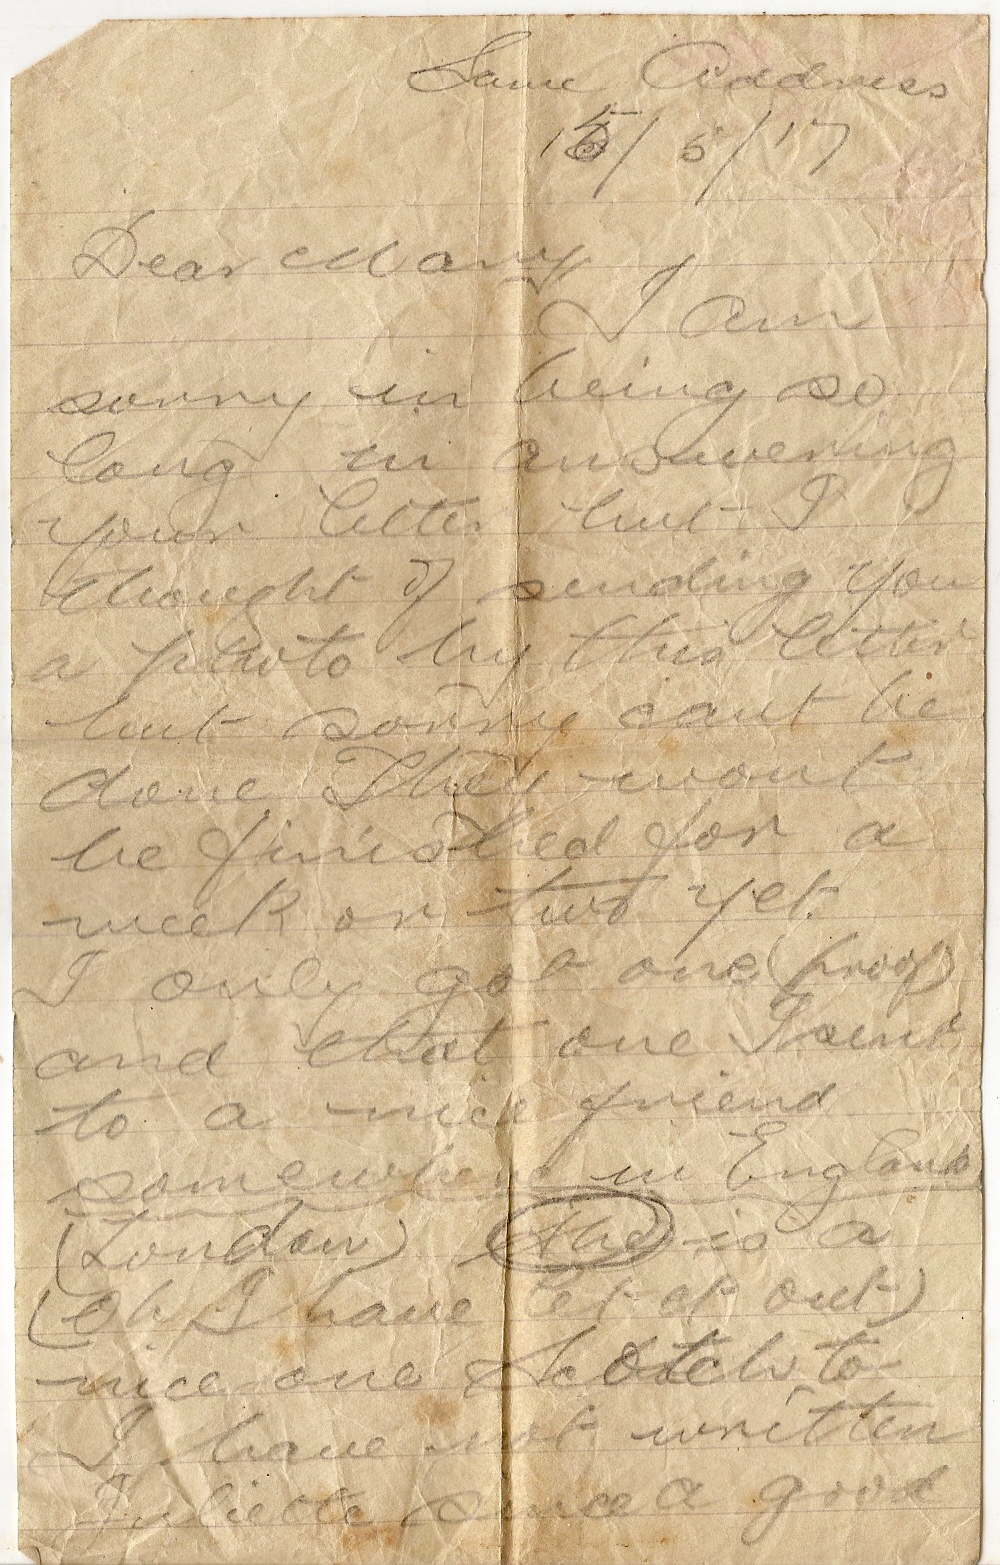 Same Address
15/5/17
Dear Mary
I am
sorry in being so
long in answering
your letter but I
thought of sending you
a photo by this letter
but sorry cant be
done They wont
be finished for a
week or two yet.
I only got one (proof)
and that one I sent
to a nice friend
somewhere in England
(London) She is a
(oh I have let it out)
nice one Scotch to
I have not written
Juliette since a good